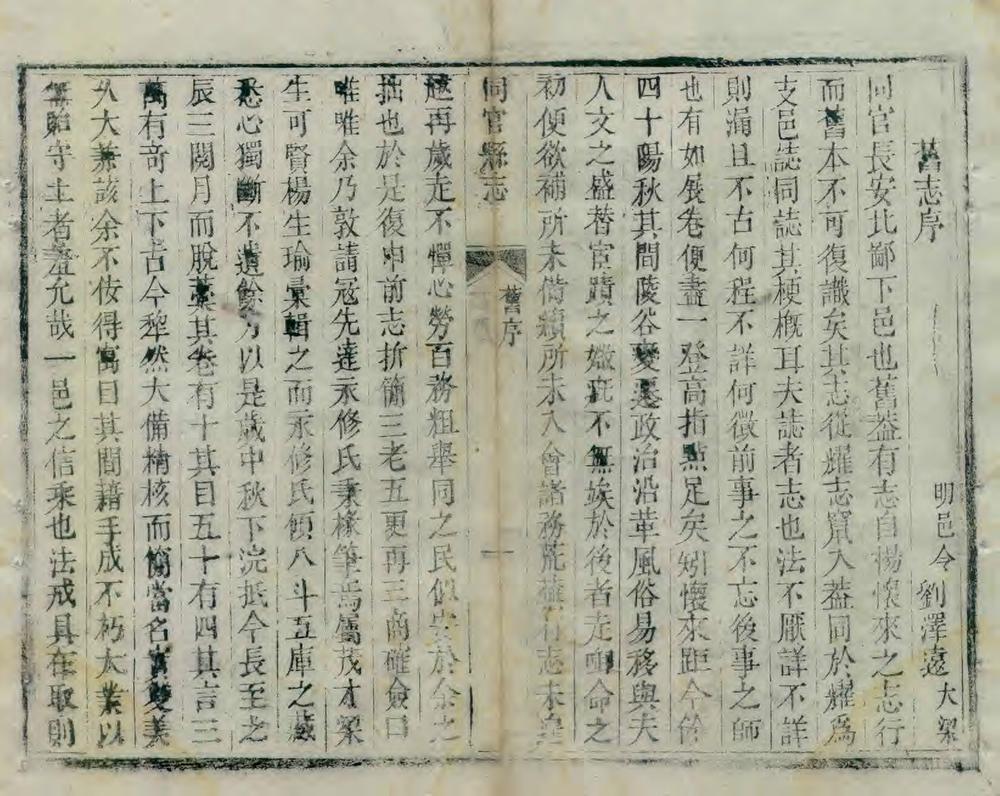 舊志序
明邑令劉澤遠大梁
同官長安北鄙下邑也舊葢有志自楊懷來之志行
而舊本不可復識矣其志從耀志竄入葢同於耀爲
支邑誌同誌其梗概耳夫誌者志也法不厭詳不詳
則漏且不古何程不詳何徵前事之不忘後事之師
也有如展卷便盡一登高指點足矣矧懷來距今餘
四十陽秋其間陵谷變遷政治沿革風俗易移與夫
人文之盛替宦蹟之媺疵不無俟於後者走啣命之
初便欲補所未備續所未入會諸務荒蕪有志未遑
同官縣志
舊序
一
越再歲走不憚心勞百務粗舉同之民似安於余之
拙也於是復申前志折簡三老五更再三商確僉曰
唯唯余乃敦請冦先達永修氏秉椽筆焉屬茂才梁
生可賢楊生瑜彙輯之而永修氏傾八斗五庫之藏
悉心獨斷不遺餘力以是歲中秋下浣抵今長至之
辰三閱月而脫藁其卷有十其目五十有四其言三
萬有奇上下古今犂然大備精核而簡當名實雙美
久大兼該余不佞得寓目其間藉手成不朽大業以
無貽守土者羞允哉一邑之信乘也法戒具在取則